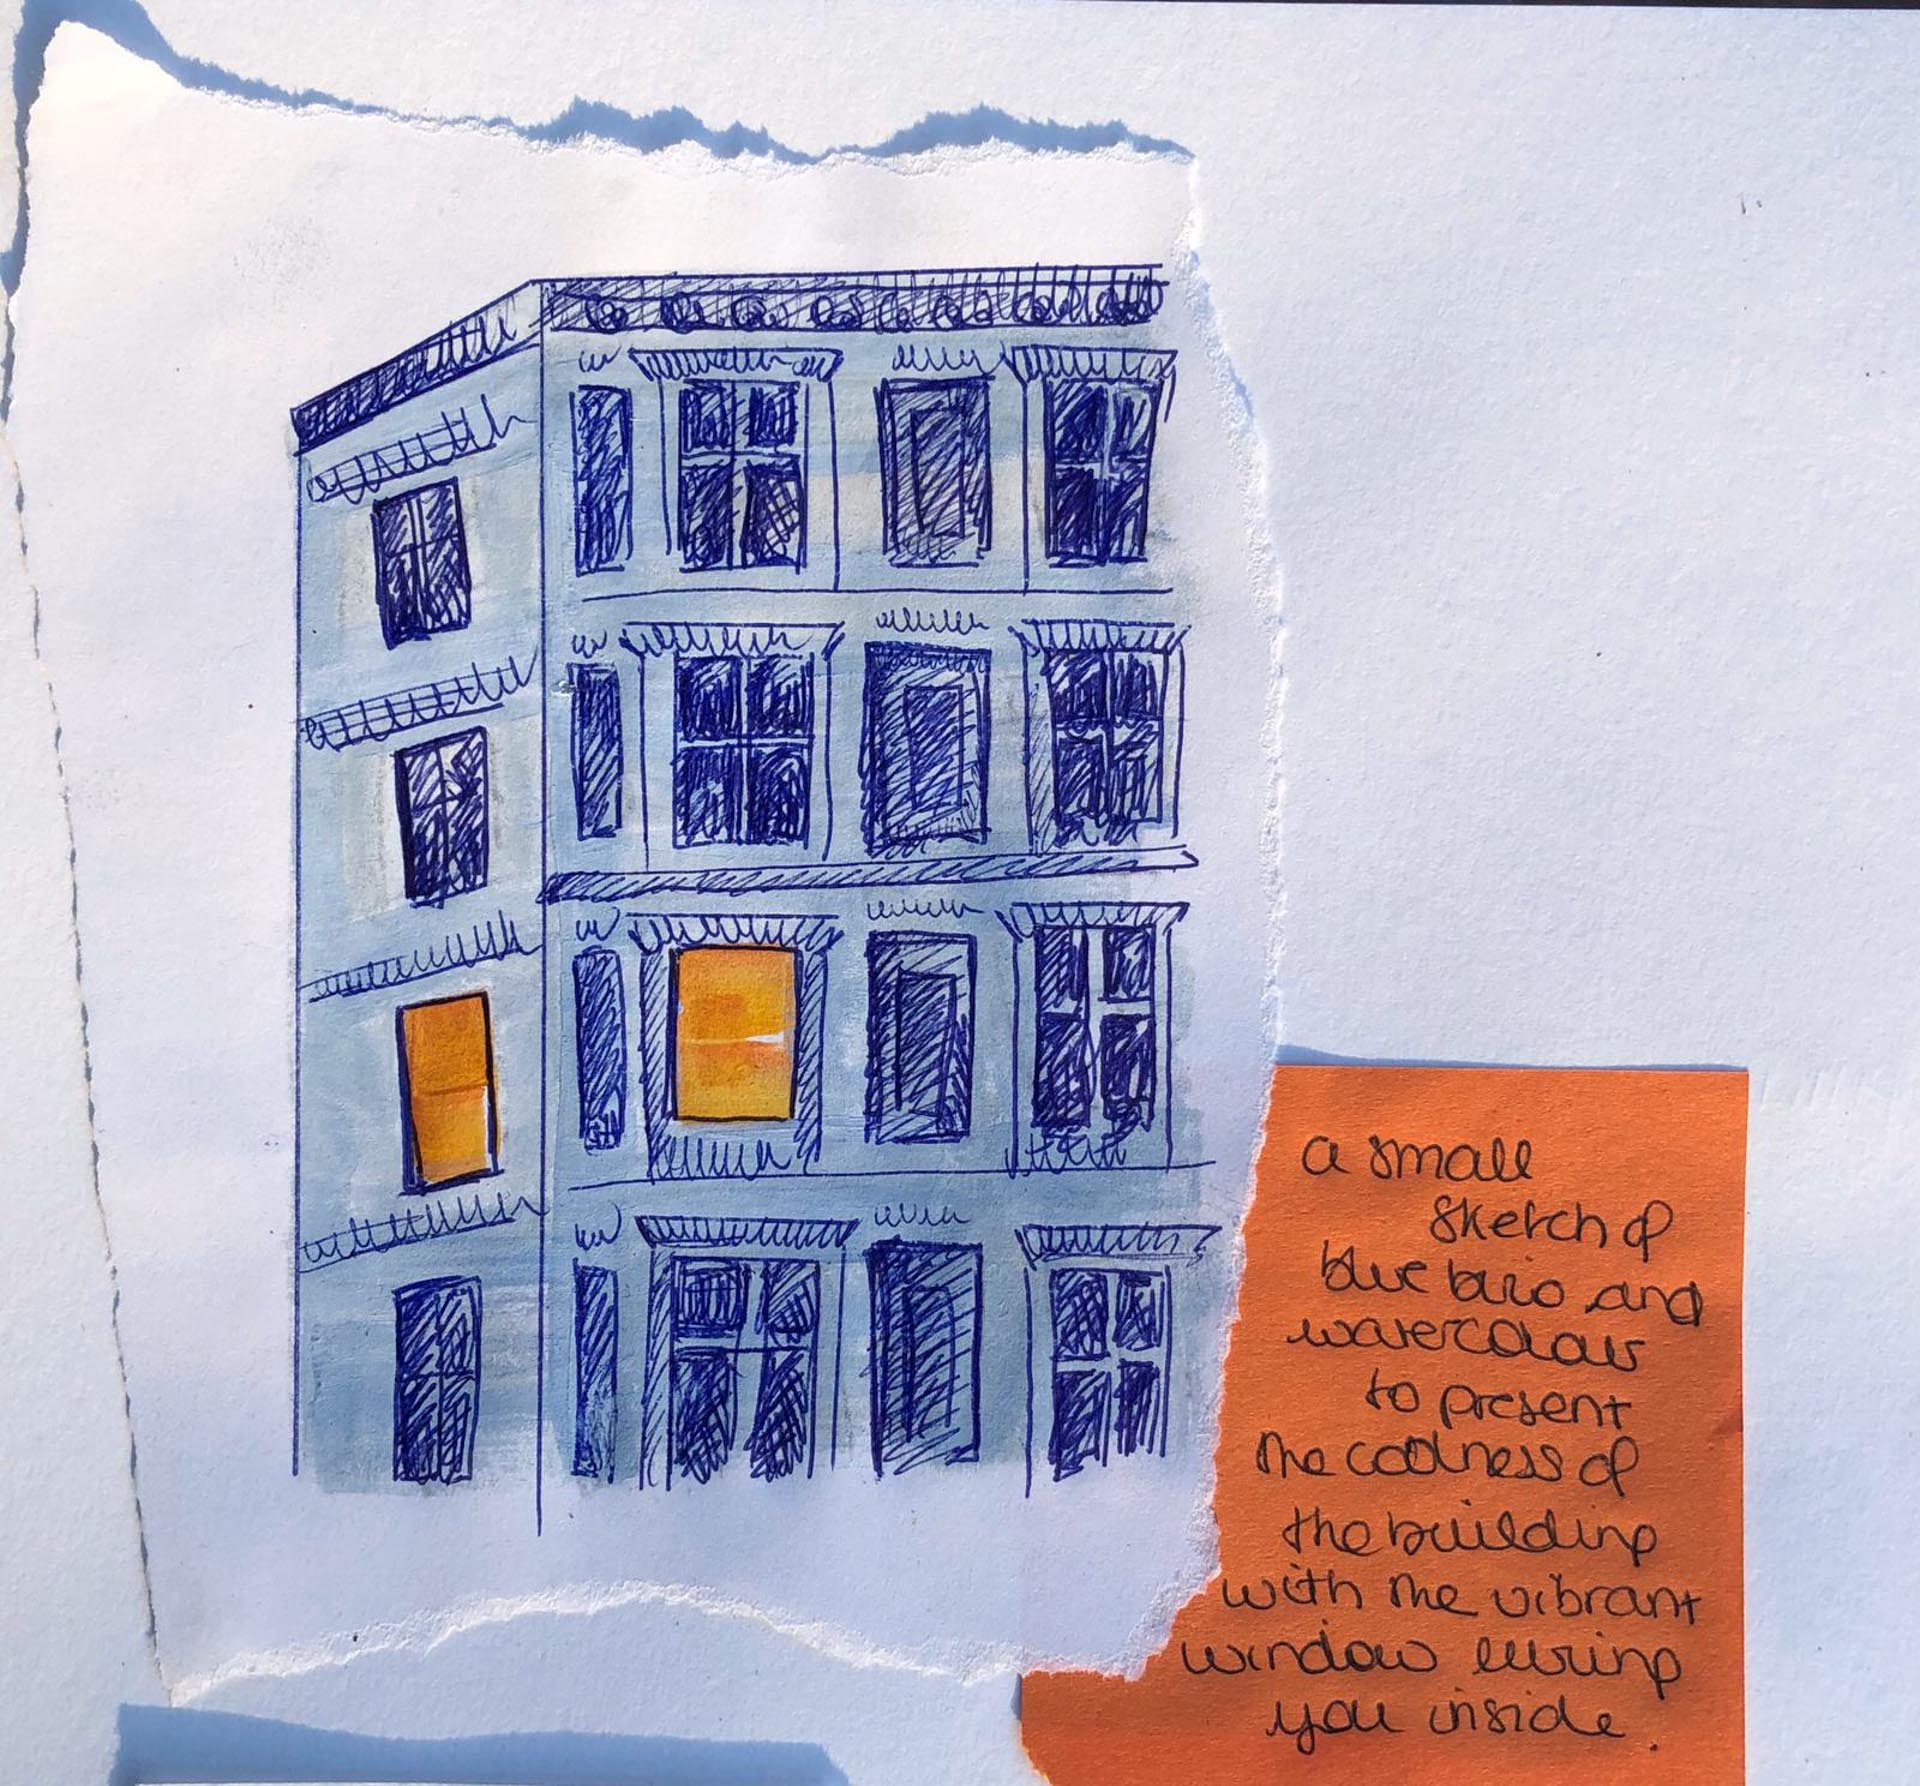 a small
sketch of
blue biro and
watercolour
to present
the coolness of
the building
with the vibrant
window luring
you inside.